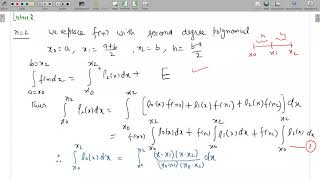 n=2 we replace f(x) with second degree polynomial
x0 = a, x1 = a+b/2, x2 = b, h = b-a/2
h h
x0 x1 x2
b=x2 ∫ a=x0 f(x)dx = ∫ x0 x2 l2(x)dx + E
Thus ∫ x0 x2 l2(x)dx = ∫ x0 x2 [l0(x)f(x0) + l1(x)f(x1) + l2(x)f(x2)] dx
= f(x0) ∫ x0 x2 l0(x)dx + f(x1) ∫ x0 x2 l1(x)dx + f(x2) ∫ x0 x2 l2(x)dx
1
∴ ∫ x0 x2 l0(x)dx = ∫ x0 x2 (x-x1)(x-x2)/(x0-x1)(x0-x2) dx